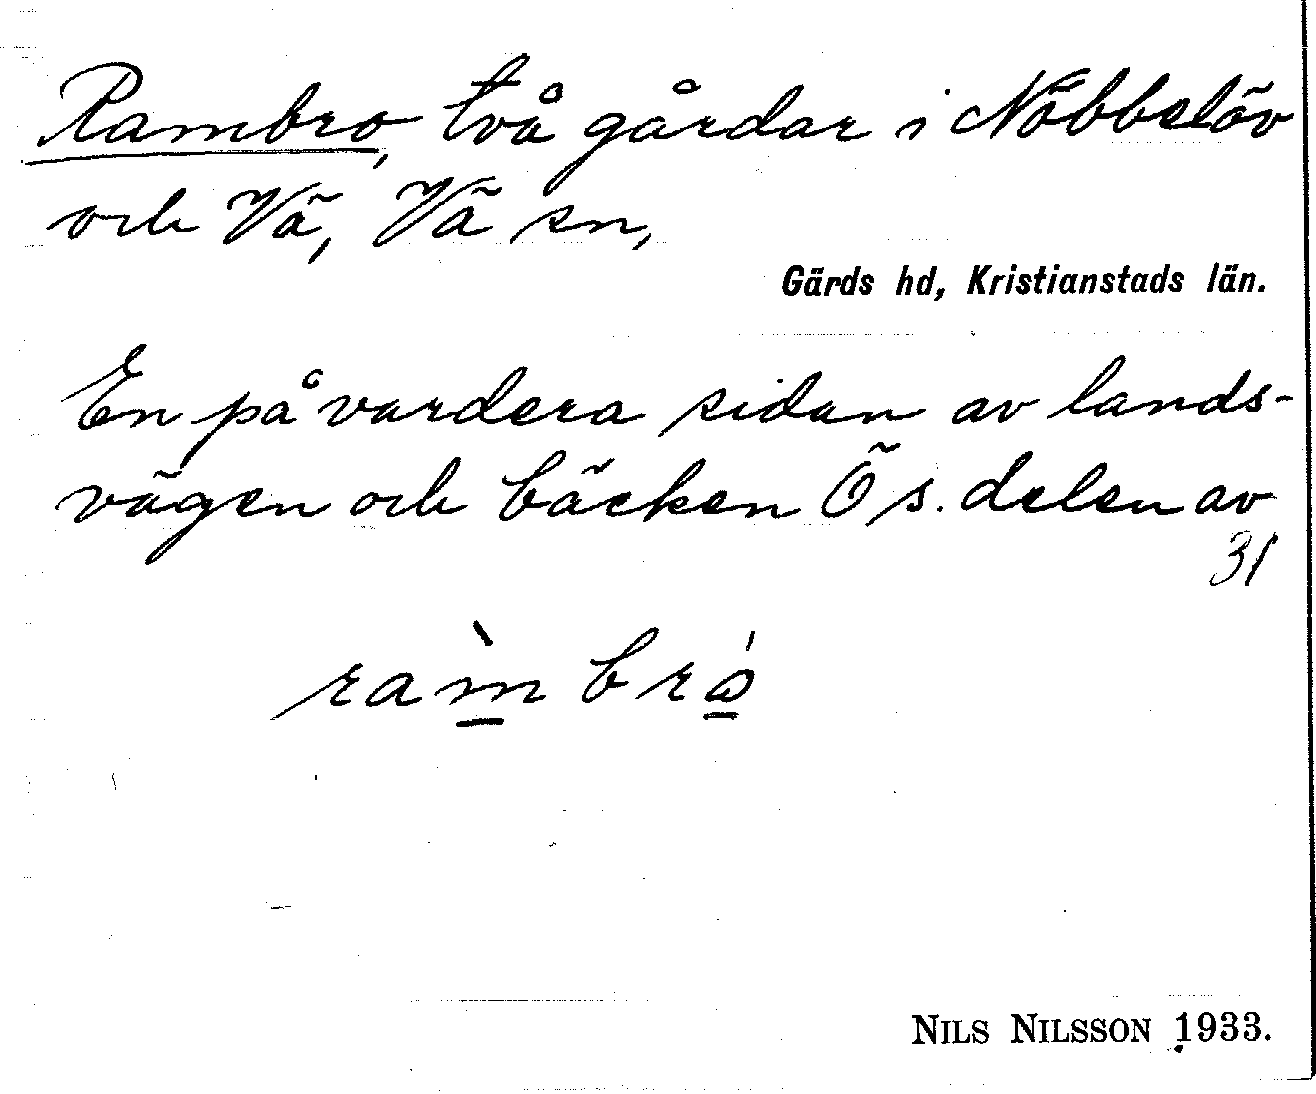 Rambro, två gårdar i Nöbbelöv
och Vä, Vä sn,
Gärds hd, Kristianstads län.
En på vardera sidan av lands-
vägen och bäcken Ö s. delen av
31
ram̀ bró
NILS NILSSON 1933.